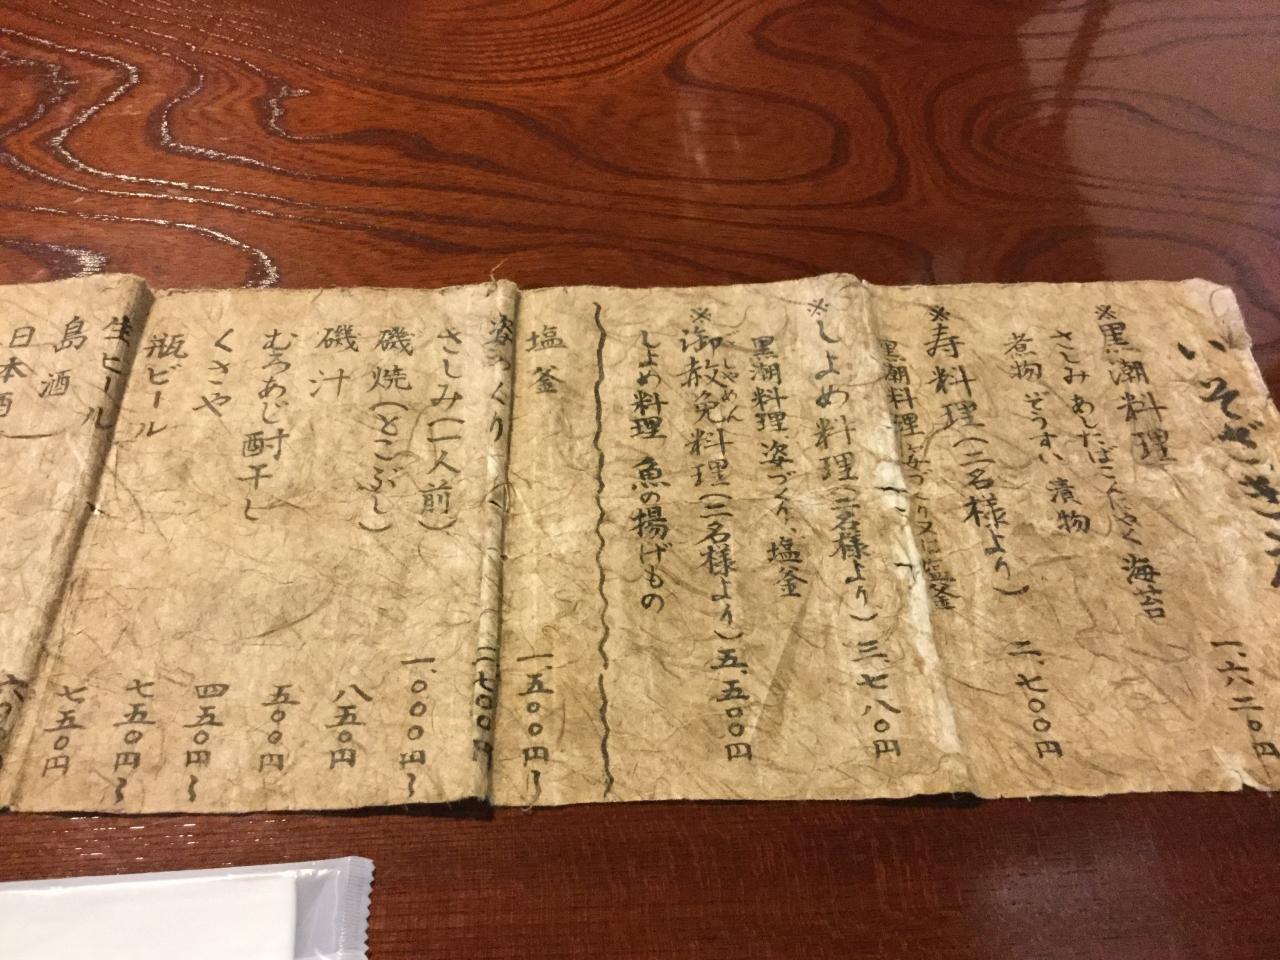 いそざきえん
※黒潮料理 一、六二〇円
さしみ あしたばこんにゃく 海苔
煮物 ぞうすい 漬物
※寿料理(二名様より) 二、七〇〇円
黒潮料理 姿づくり又は塩釜
※しよめ料理(二名様より) 三、七八〇円
黒潮料理 姿づくり、塩釜
※御赦免料理(二名様より) 五、五〇〇円
しゃめん
しよめ料理 魚の揚げもの
塩釜 一、五〇〇円〜
姿づくり
さしみ(一人前) 一、〇〇〇円〜
磯焼(とこぶし) 八五〇円
磯汁 五〇〇円
むろあじ酎干し 四五〇円〜
くさや 七五〇円〜
瓶ビール 七五〇円
生ビール
島酒
日本酒